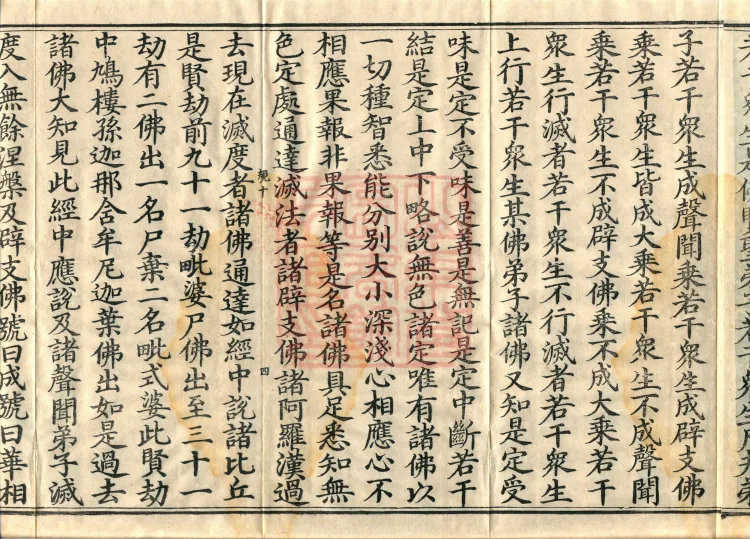 子若干衆生成聲聞乗若干衆生成辟支佛
乗若干衆生皆成大乗若干衆生不成聲聞
乗若干衆生不成辟支佛乗不成大乗若干
衆生行滅者若干衆生不行滅者若干衆生
上行若干衆生某佛弟子諸佛又知是定受
味是定不受味是善是無記是定中斷若干
結是定上中下略説無色諸定唯有諸佛以
一切種智悉能分别大小深淺心相應心不
相應果報非果報等是名諸佛具足悉知無
色定處通達滅法者諸辟支佛諸阿羅漢過
四
去現在滅度者諸佛通達如經中説諸比丘
是賢劫前九十一劫毗婆尸佛出至三十一
劫有二佛出一名尸棄二名毗式婆此賢劫
中鳩樓孫迦那含牟尼迦葉佛出如是過去
諸佛大知見此經中應説及諸聲聞弟子滅
度入無餘涅槃及辟支佛號曰成號曰華相